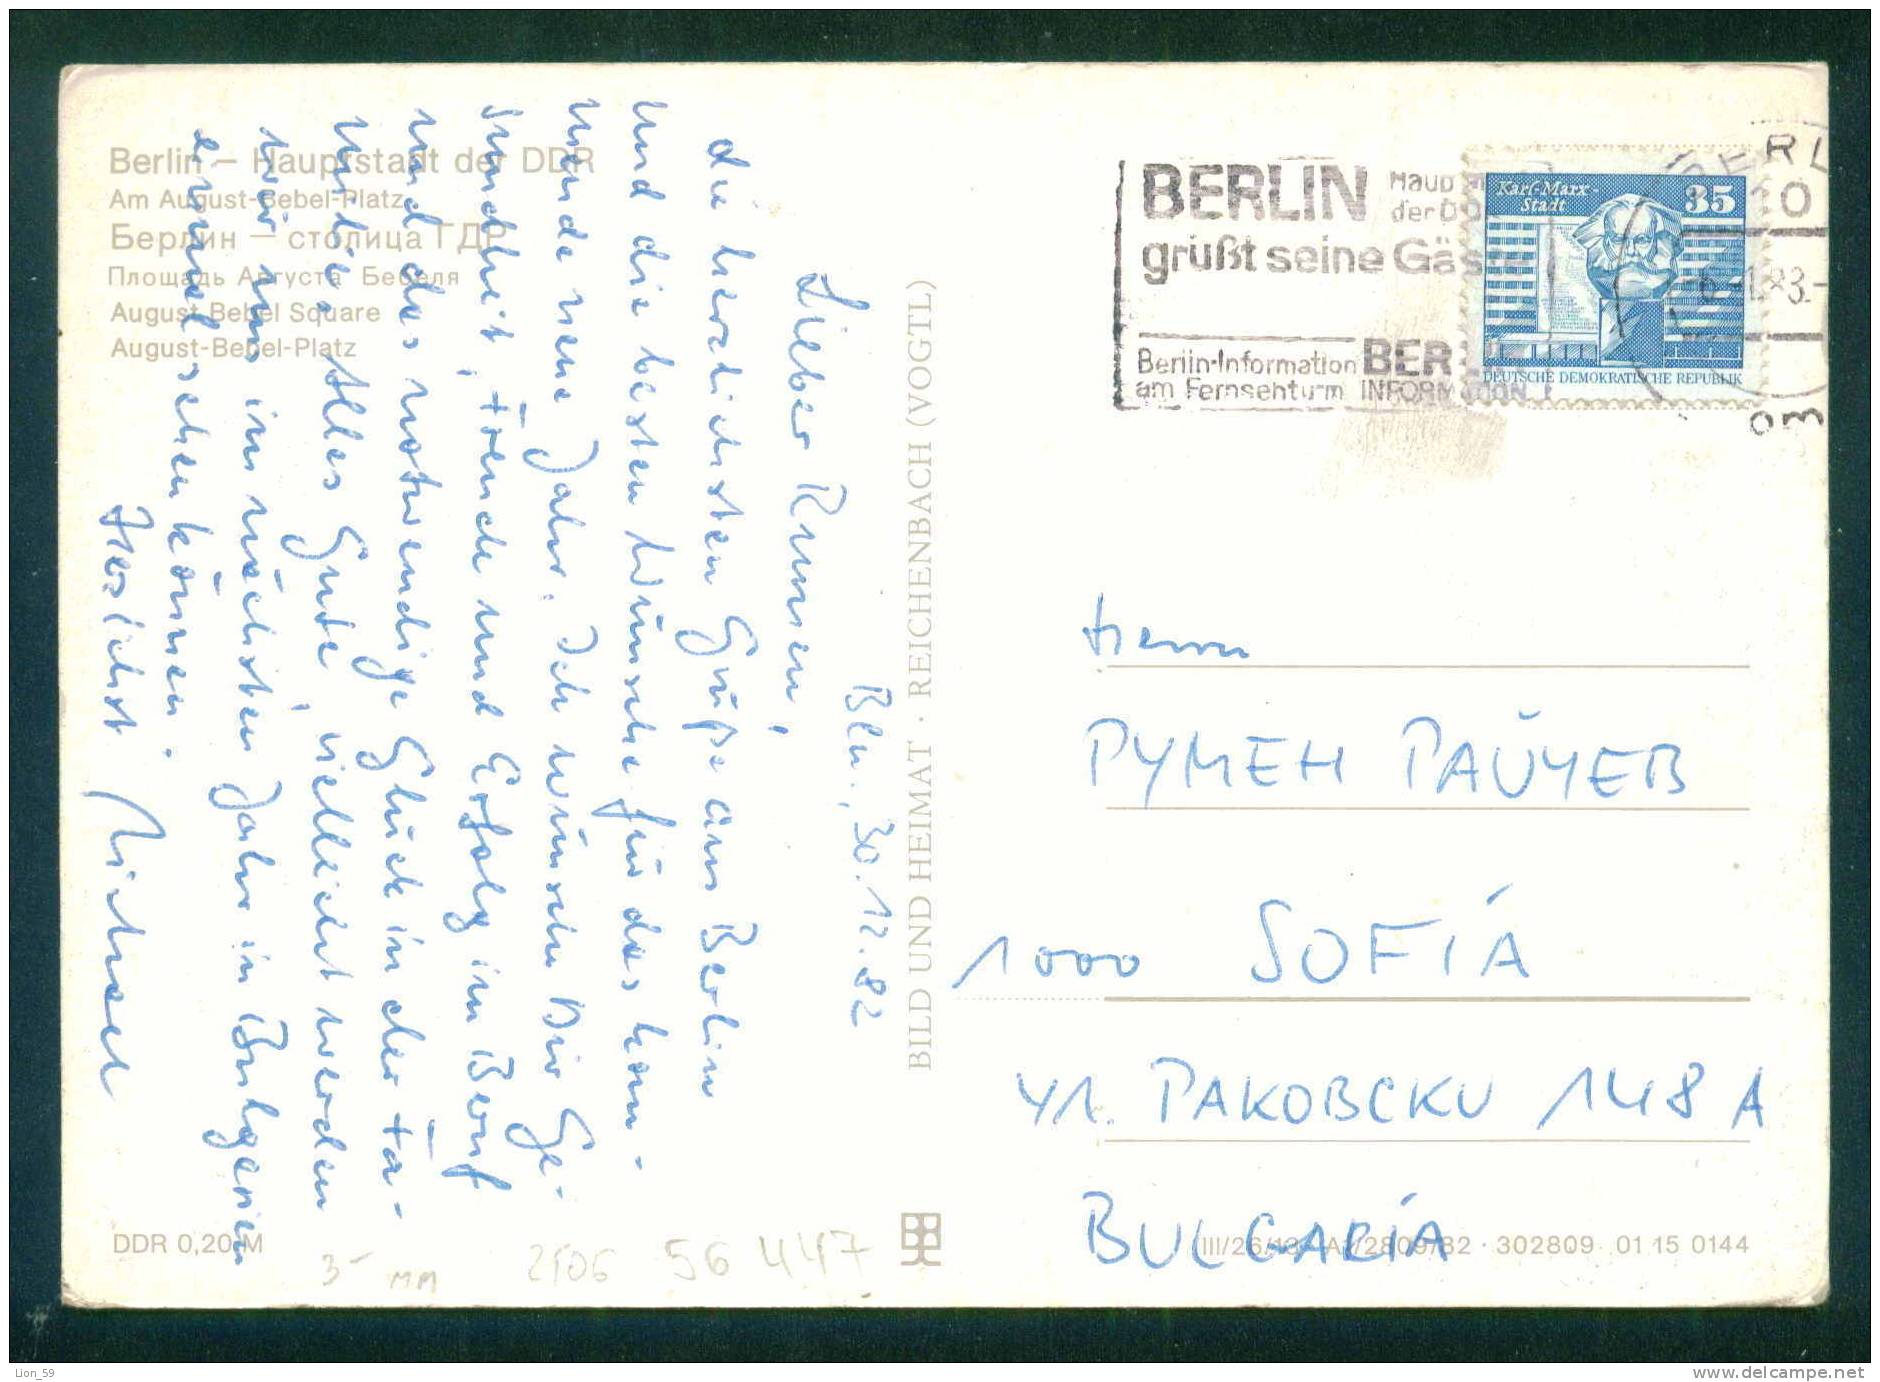 Berlin – Hauptstadt der DDR
Am August-Bebel-Platz
Берлин – столица ГДР
Площадь Августа Бебеля
August Bebel Square
August-Bebel-Platz
Bln., 30.12.82
Lieber Rumen,
die herzlichsten Grüße aus Berlin
und die besten Wünsche für das kom-
mende neue Jahr. Ich wünsche Dir Ge-
sundheit, Freude und Erfolg im Beruf
und das notwendige Glück in der Fa-
milie. Alles Gute, vielleicht werden
wir uns im nächsten Jahr in Bulgarien
einmal sehen können.
Herzlichst Michael
DDR 0,20 M
3- мм
2506 56 447
BILD UND HEIMAT · REICHENBACH (VOGTL)
BERLIN
der DD
grüßt seine Gäs
Berlin-Information
am Fernsehturm
BER
INFORMATION
Karl-Marx-
Stadt
35
DEUTSCHE DEMOKRATISCHE REPUBLIK
Herrn
РУМЕН РАЙЧЕВ
1000 SOFIA
УЛ. РАКОВСКИ 148 A
BULGARIA
302809 01 15 0144
Lion_59
www.delcampe.net